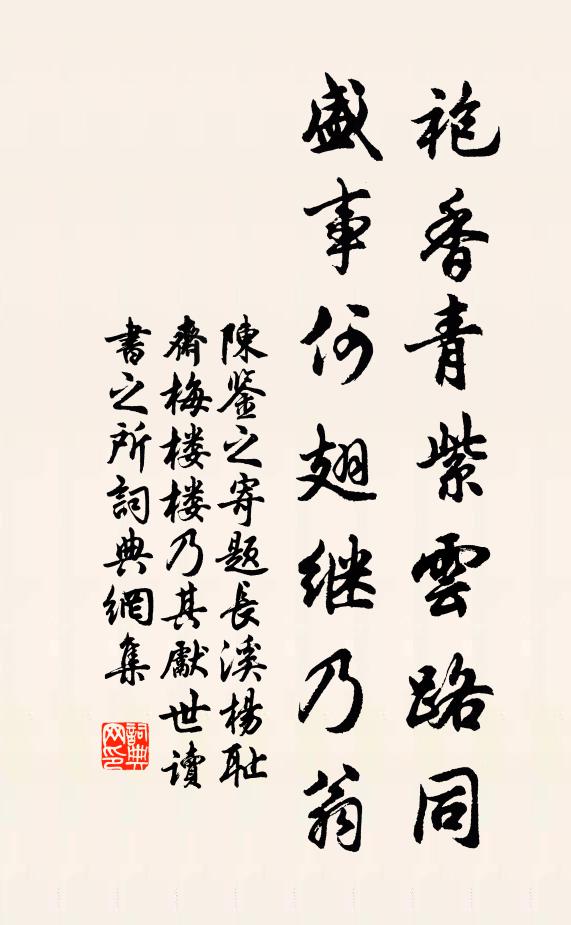 袍香青紫雲路同
盛事何翅繼乃翁
陳鑒之寄題長溪楊耻
齋梅楼楼乃其獻世讀
書之所詞典網集
詞典網印